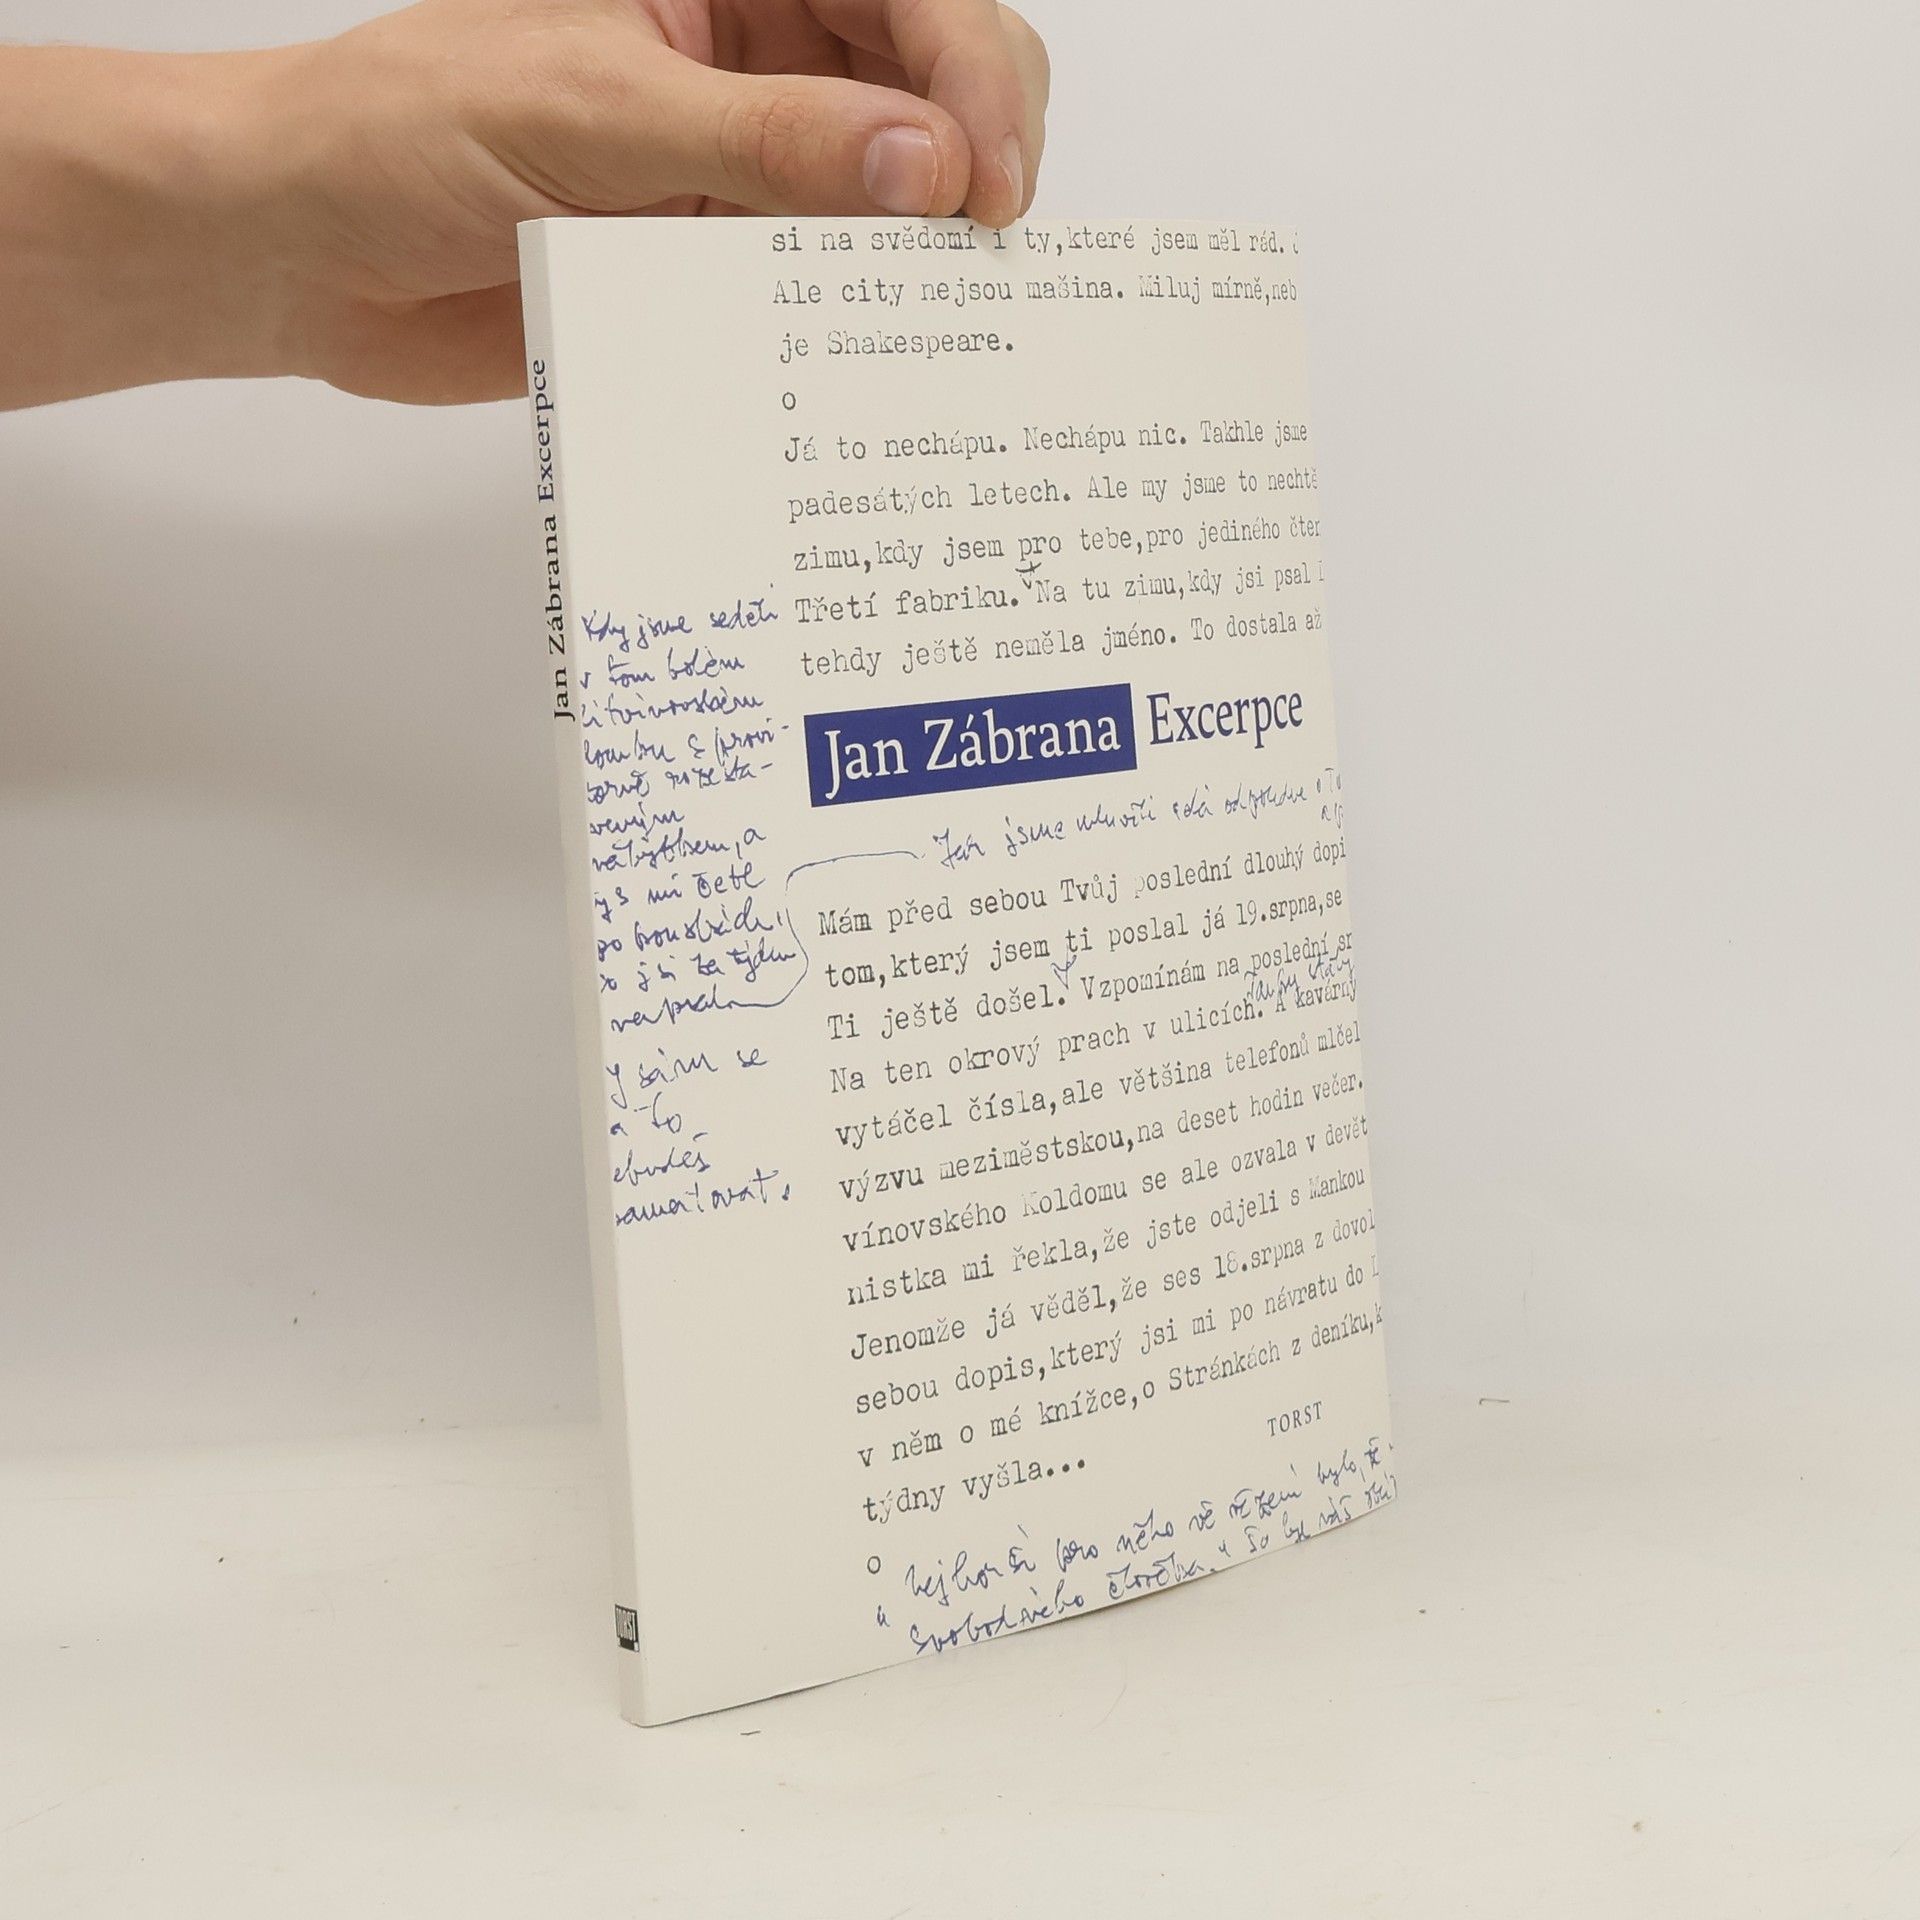 Jan Zábrana Excerpce
TORST
si na svědomí i ty,které jsem měl rád.
Ale city nejsou mašina. Miluj mírně,neb
je Shakespeare.
o
Já to nechápu. Nechápu nic. Takhle jsme
padesátých letech. Ale my jsme to nechtě
zimu,kdy jsem pro tebe,pro jediného čten
Třetí fabriku. Na tu zimu,kdy jsi psal
tehdy ještě neměla jméno. To dostala až
Jan Zábrana Excerpce
Kdy jsme seděli
v tom
litvínovském
nábytkem, a
tys mi četl
po kouskách,
co jsi za týden
napsal
sám se
a to
Jak jsme mluvili
Mám před sebou Tvůj poslední dlouhý dopi
tom,který jsem ti poslal já 19.srpna,se
Ti ještě došel. Vzpomínám na poslední sr
Na ten okrový prach v ulicích. A kavárny
vytáčel čísla,ale většina telefonů mlčel
výzvu meziměstskou,na deset hodin večer.
vínovského Koldomu se ale ozvala v devět
nistka mi řekla,že jste odjeli s Mankou
Jenomže já věděl,že ses 18.srpna z dovol
sebou dopis,který jsi mi po návratu do L
v něm o mé knížce,o Stránkách z deníku,k
týdny vyšla...
TORST
o
nejhorší pro něho ve vězení bylo, že
svobodného člověka." To byl váš